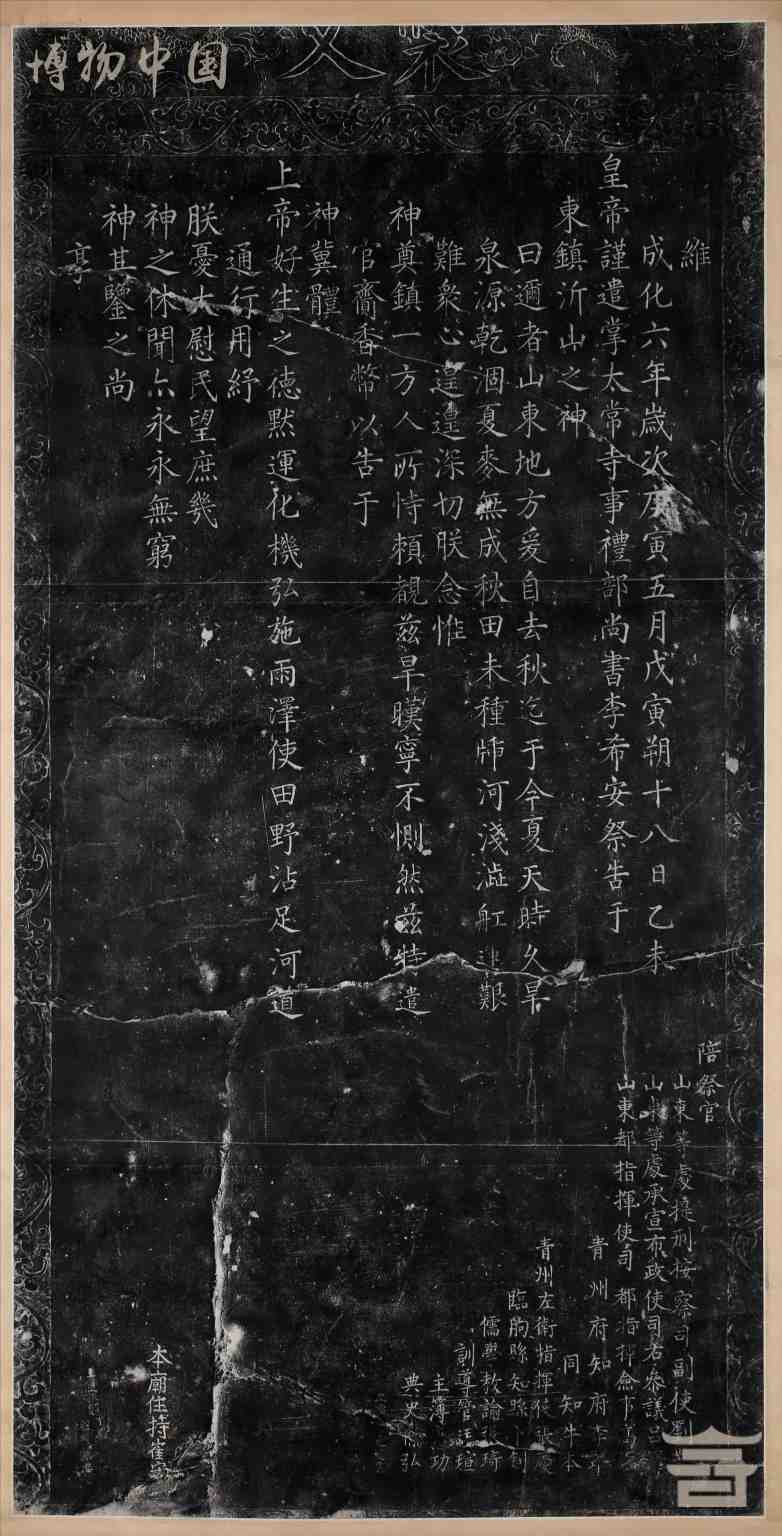 博物中国
維
成化六年歲次庚寅五月戊寅朔十八日乙未
皇帝謹遣掌太常寺事禮部尚書李希安祭告于
東鎮沂山之神
曰邇者山東地方爰自去秋迄于今夏天時久旱
泉源乾涸夏麥無成秋田未種 河淺澁舡 艱
難衆心遑遑深切朕念惟
神奠鎮一方人所恃頼覩兹旱暵寧不惻然兹特遣
官齎香幣以告于
神冀體
上帝好生之德默運化機弘施雨澤使田野沾足河道
通行用紓
朕憂大慰民望庶幾
神之休聞亦永永無窮
神其鑒之尚
享
陪祭官
山東等處提刑按察司副使劉
山東等處承宣布政使司右參議
山東都指揮使司都指揮僉事
青州府知府李
同知牛本
青州左衛指揮使張
臨朐縣知縣卜釗
儒學教諭 琦
訓導管 瑄
主薄 功
典史 弘
本廟住持